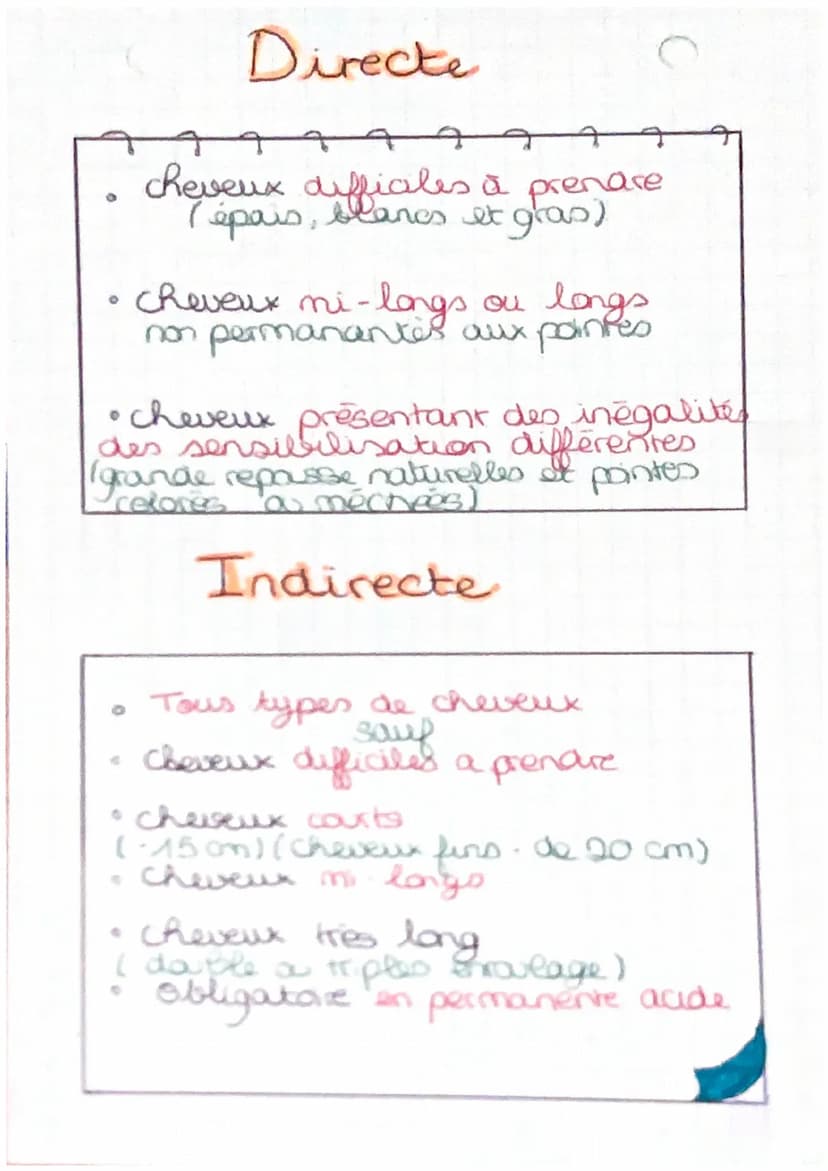 Directe
• cheveux difficiles à prendre
(épais, blancs et gras)
• cheveux mi-longs ou longs
non permanantés aux pointes
• cheveux présentant des inégalités
des sensibilisation différentes
(grande repasse naturelles et pointes
colorés ou méchées)
Indirecte
• Tous types de cheveux
sauf
• Cheveux difficiles a prendre
• cheveux courts
(-15 cm) (cheveux fins - de 20 cm)
• cheveux mi-longs
• cheveux très long
(double a triples enroulage)
• Obligatoire en permanente acide